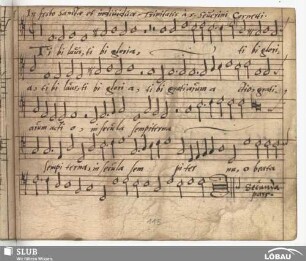 In festo sanctæ et individuæ Trinitatis à 5. Severini Corneti.
Tibi laus, tibi gloria, tibi glori,
a, tibi laus, tibi glori a, tibi gratiarum a ctio, grati,
arum acti o, in secula sempiterna
sempi terna, in secula sem pi ter na, o beata
Secunda
pars.
SLUB
Wir führen Wissen.
LÖBAU